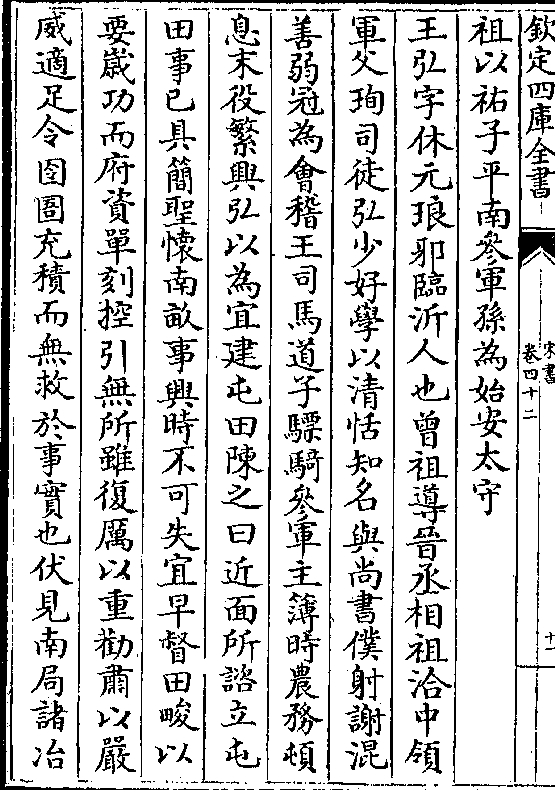 欽定四庫全書
宋書
卷四十二
十一
祖以祐子平南參軍孫為始安太守
王弘字休元琅邪臨沂人也曾祖導晉丞相祖洽中領
軍父珣司徒弘少好學以清恬知名與尚書僕射謝混
善弱冠為會稽王司馬道子驃騎參軍主簿時農務頓
息末役繁興弘以為宜建屯田陳之曰近面所諮立屯
田事已具簡聖懷南畝事興時不可失宜早督田畯以
要歲功而府資單刻控引無所雖復厲以重勸肅以嚴
威適足令囹圄充積而無救於事實也伏見南局諸冶